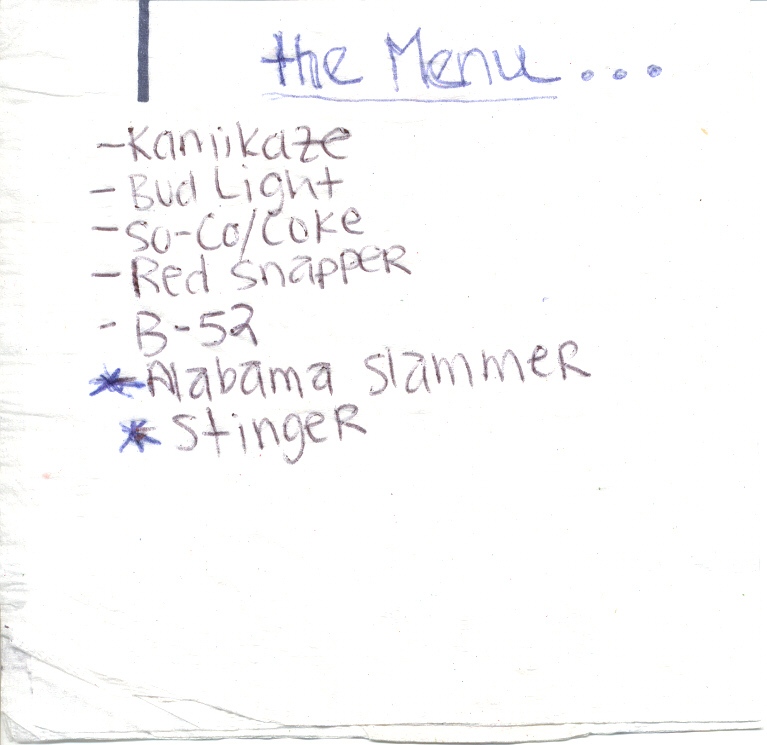 the Menu...
-Kamikaze
- Bud Light
- So-Co/Coke
- Red Snapper
- B-52
*-Alabama Slammer
* Stinger